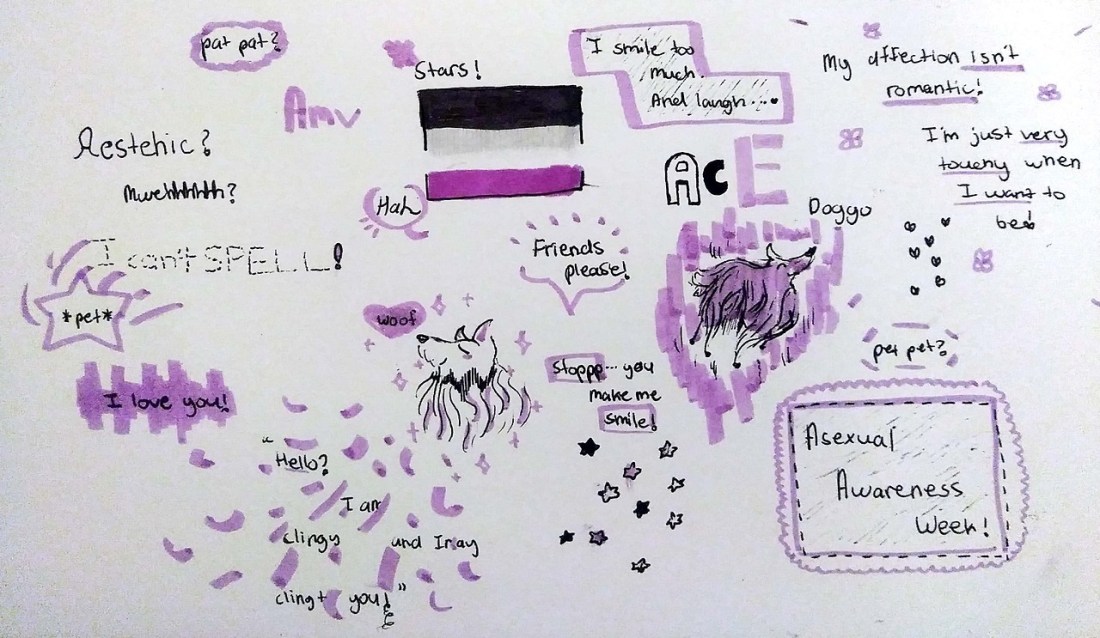 pat pat?
Stars!
I smile too
much.
And laugh...
My affection isn't
romantic!
Amv
Aestehic?
Mwehhhhhh?
I'm just very
touchy when
I want to
be!
AcE
Doggo
Hah
I can't SPELL!
Friends
please!
*pet*
woof
pet pet?
stoppp... you
make me
smile!
I love you!
Asexual
Awareness
Week!
"Hello?
I am
clingy and I
you!"